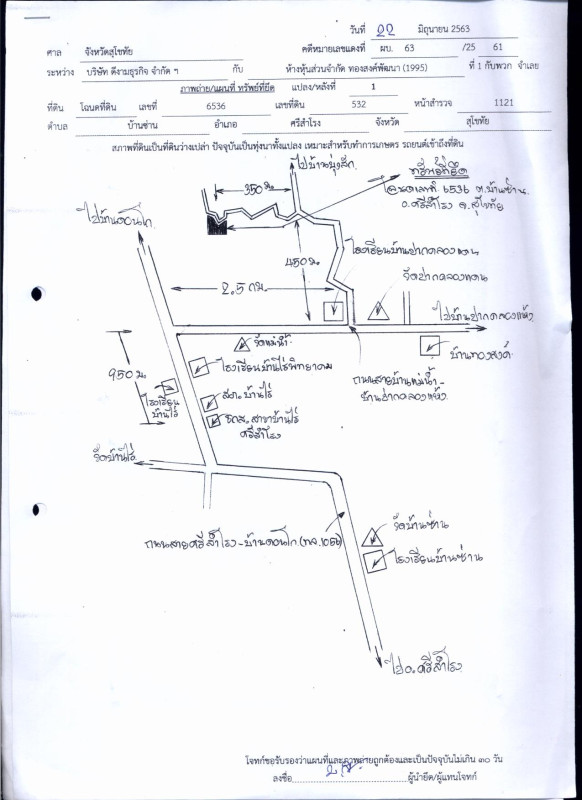 วันที่ ๒๒ มิถุนายน 2563
ศาล จังหวัดสุโขทัย คดีหมายเลขแดงที่ ผบ. 63 /25 61
ระหว่าง บริษัท ดีงามธุรกิจ จำกัด ฯ กับ ห้างหุ้นส่วนจำกัด ทองสงค์พัฒนา (1995) ที่ 1 กับพวก จำเลย
ภาพถ่าย/แผนที่ ทรัพย์ที่ยึด แปลง/หลังที่ 1
ที่ดิน โฉนดที่ดิน เลขที่ 6536 เลขที่ดิน 532 หน้าสำรวจ 1121
ตำบล บ้านซ่าน อำเภอ ศรีสำโรง จังหวัด สุโขทัย
สภาพที่ดินเป็นที่ดินว่างเปล่า ปัจจุบันเป็นทุ่งนาทั้งแปลง เหมาะสำหรับทำการเกษตร รถยนต์เข้าถึงที่ดิน
ไปบ้านบุ่งสัก
ทรัพย์ที่ยึด
350 ม.
โฉนดเลขที่ 6536 ต.บ้านซ่าน
อ.ศรีสำโรง จ.สุโขทัย
ไปบ้านดอนโก
450 ม.
โรงเรียนบ้านปากคลองแดน
วัดปากคลองแดน
2.5 กม.
ไปบ้านปากคลองแห้ง
วัดแม่น้ำ
บ้านทองสงค์
950 ม.
โรงเรียนบ้านไร่พิทยาคม
ถนนสายบ้านแม่น้ำ -
บ้านปากคลองแห้ง
โรงเรียน
บ้านไร่
สภ. บ้านไร่
ธกส. สาขาบ้านไร่
ศรีสำโรง
วัดบ้านไร่
วัดบ้านซ่าน
ถนนสายศรีสำโรง - บ้านดอนโก (ทล.1056)
โรงเรียนบ้านซ่าน
ไป อ.ศรีสำโรง
โจทก์ขอรับรองว่าแผนที่และภาพถ่ายถูกต้องและเป็นปัจจุบันไม่เกิน ๓๐ วัน
ลงชื่อ ผู้นำยึด/ผู้แทนโจทก์